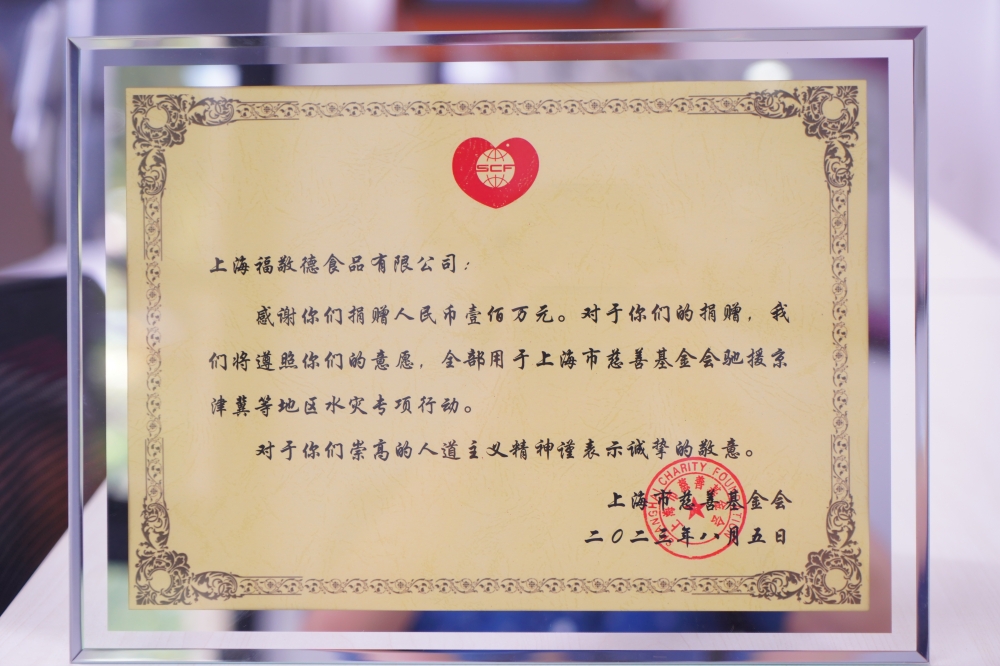 SCF
上海福敬德食品有限公司：
感谢你们捐赠人民币壹佰万元。对于你们的捐赠，我
们将遵照你们的意愿，全部用于上海市慈善基金会驰援京
津冀等地区水灾专项行动。
对于你们崇高的人道主义精神谨表示诚挚的敬意。
上海市慈善基金会
二〇二三年八月五日
SHANGHAI CHARITY FOUNDATION
上海市慈善基金会